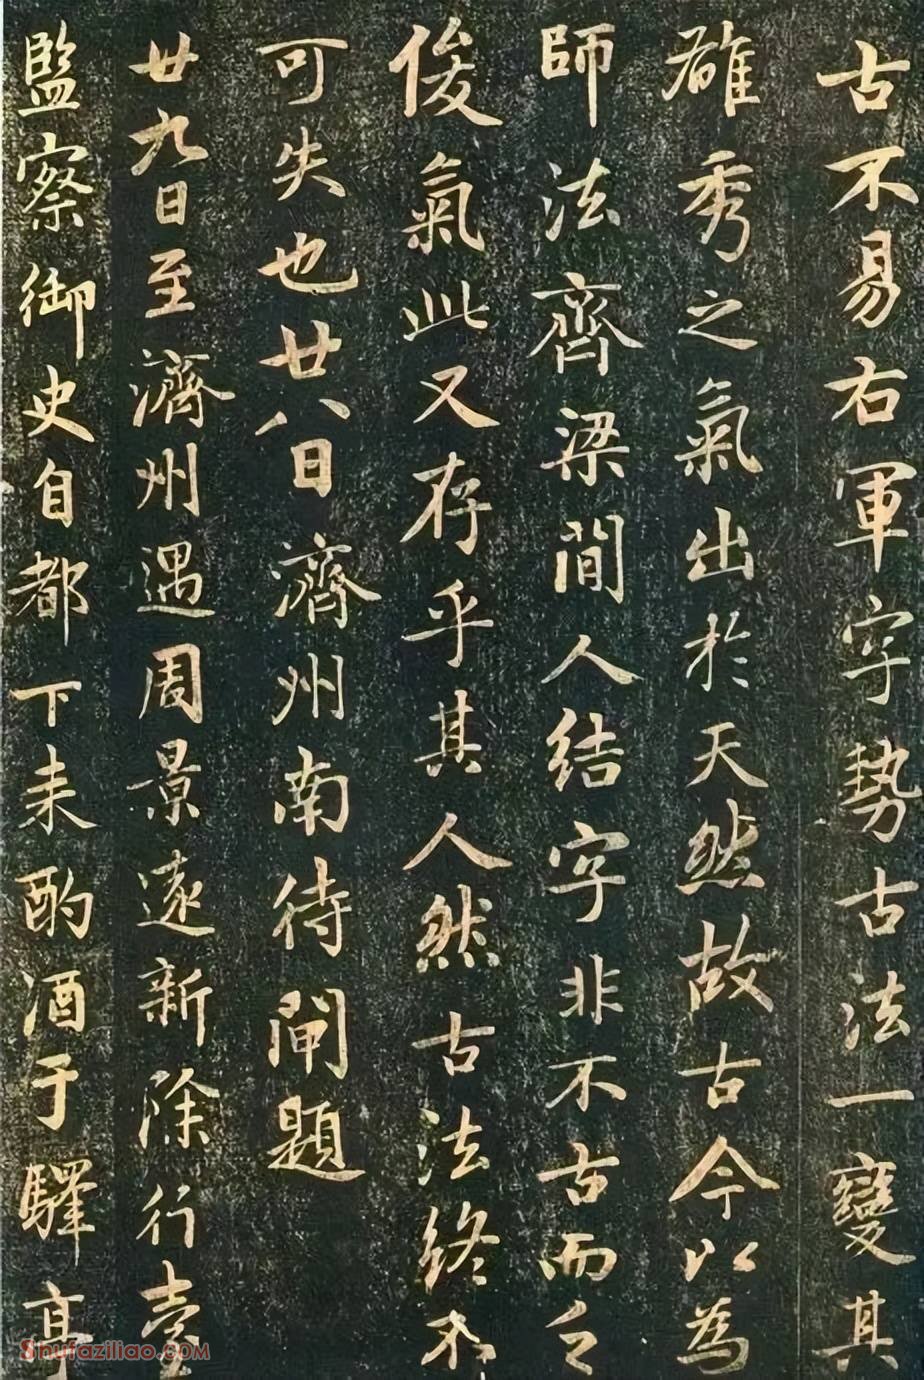 古不易右軍字勢古法一變其
雄秀之氣出於天然故古今以為
師法齊梁間人結字非不古而乏
俊氣此又存乎其人然古法終不
可失也廿八日濟州南待閘題
廿九日至濟州遇周景遠新除行臺
監察御史自都下来酌酒于驛亭
Shufaziliao.com